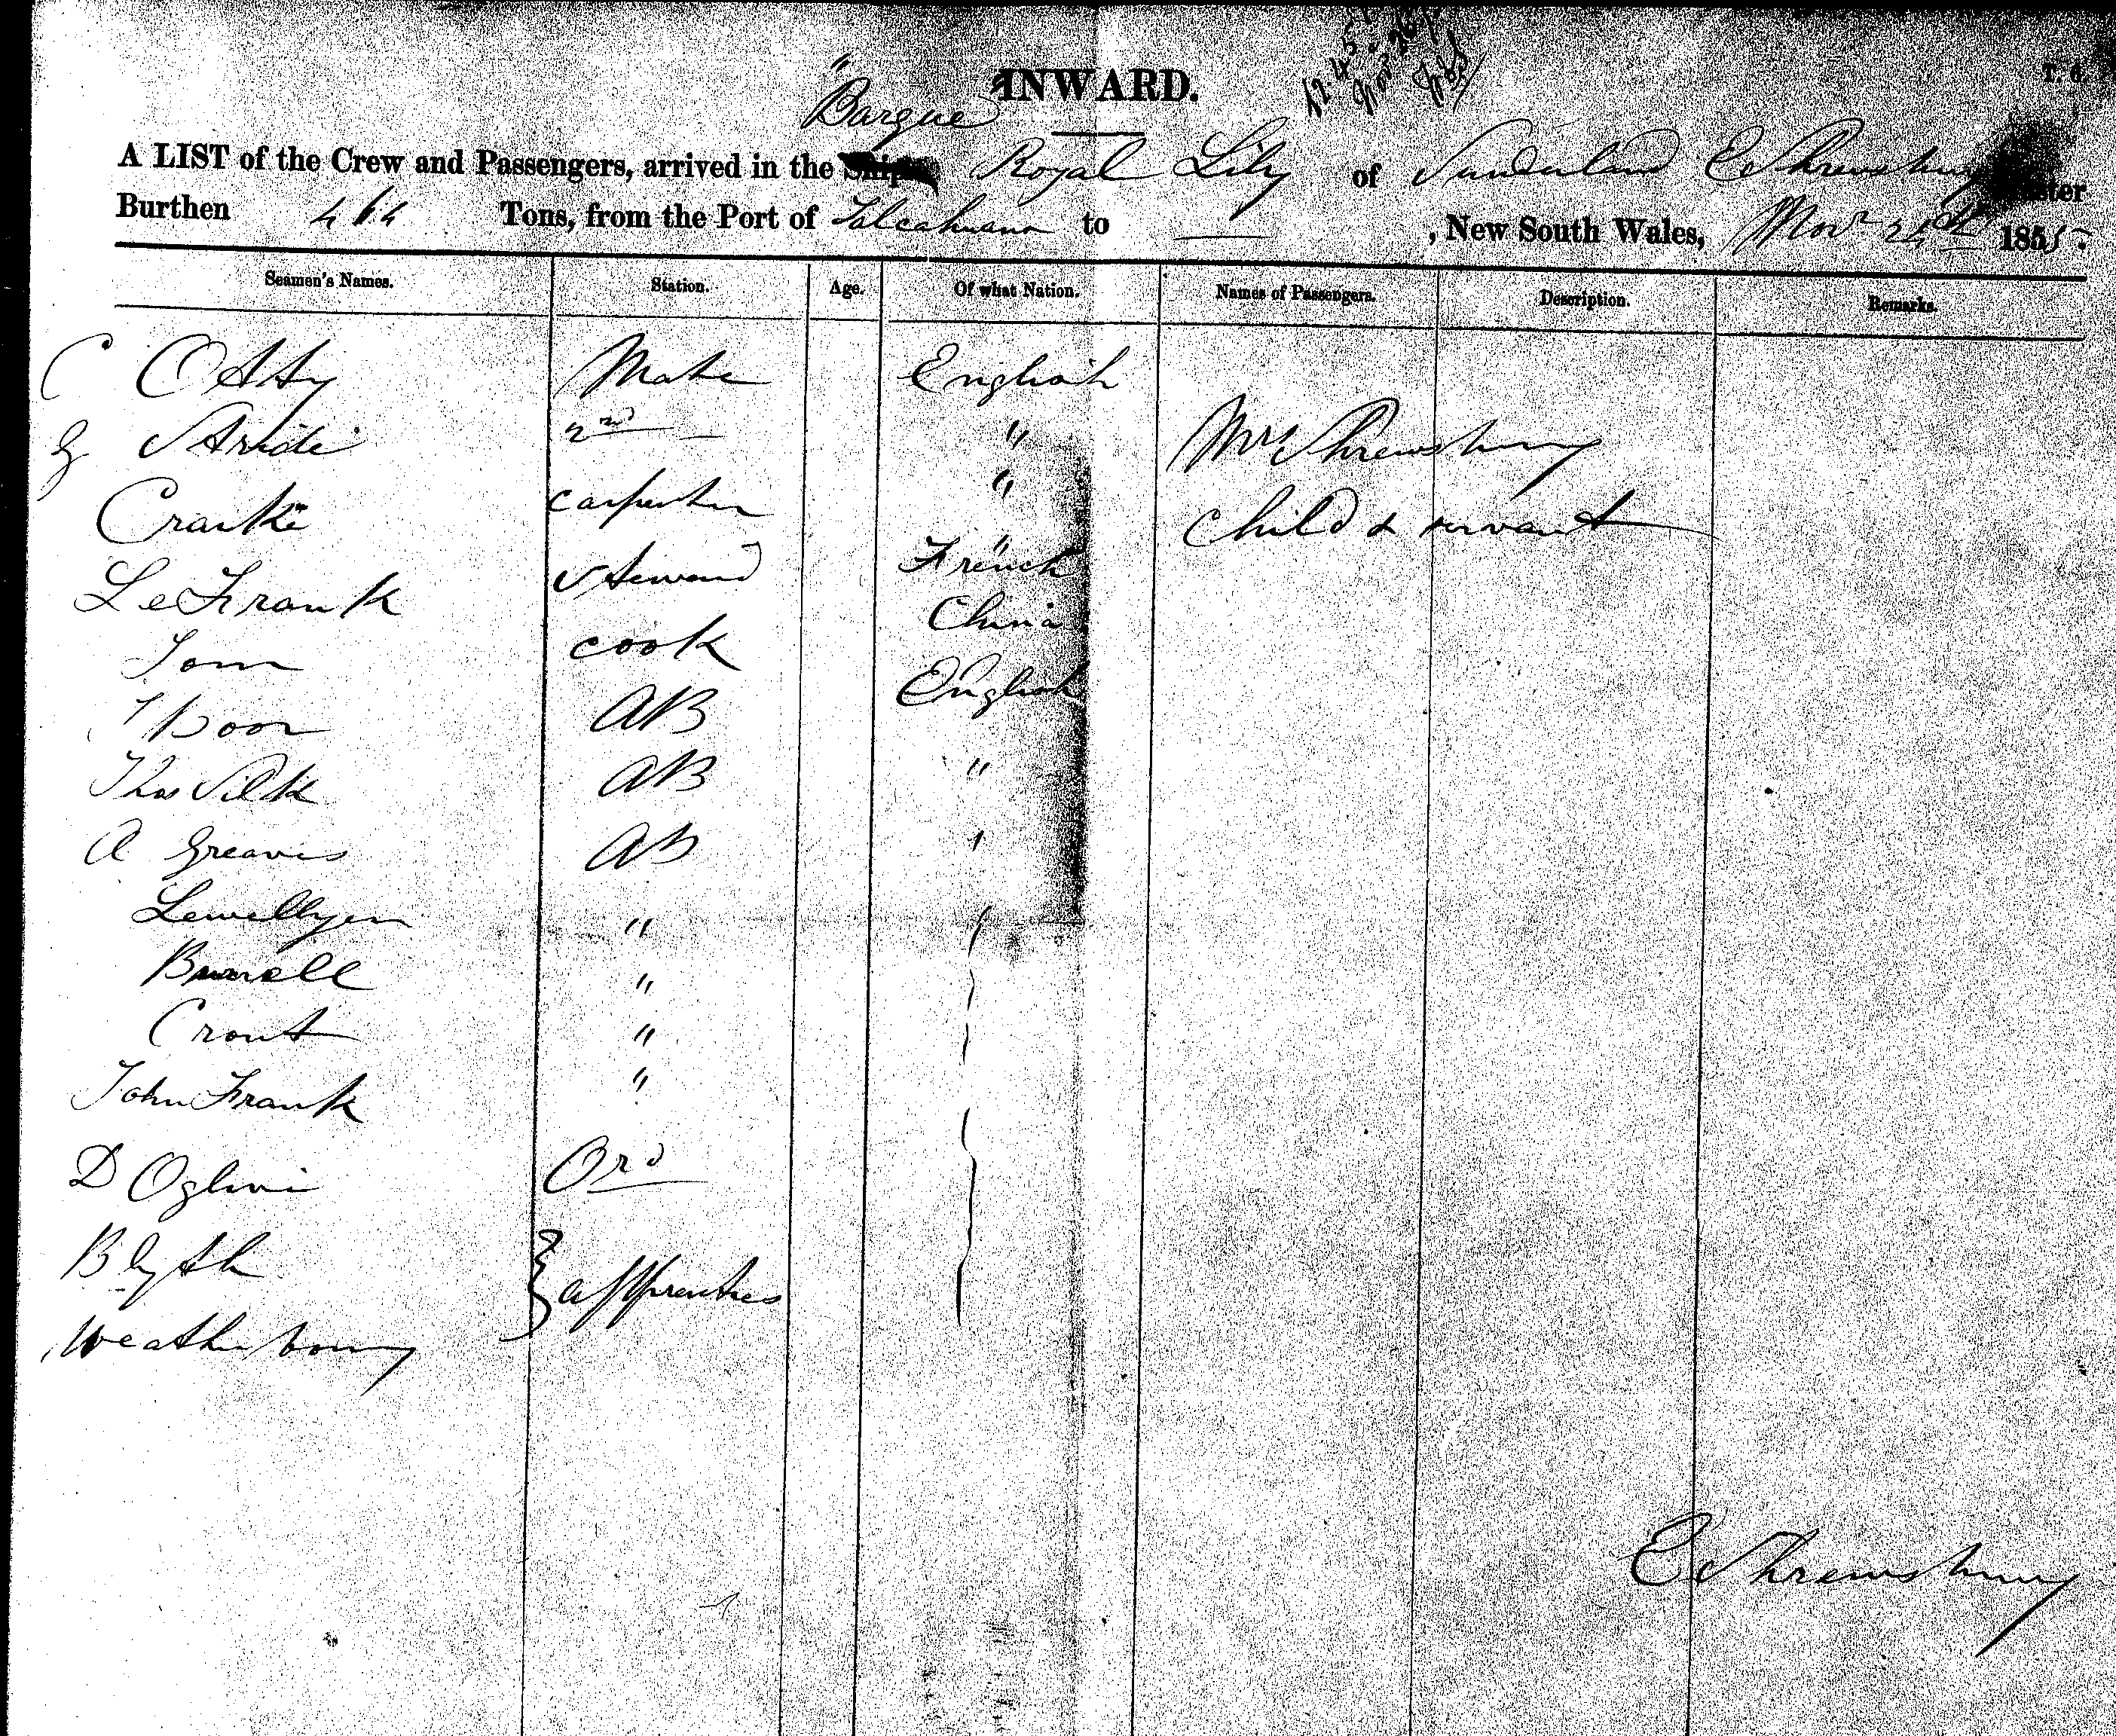 INWARD.
"Barque"
A LIST of the Crew and Passengers, arrived in the Ship Royal Lily of Sunderland E Shrewsbury Master
Burthen 464 Tons, from the Port of Talcahuano to — , New South Wales, Novr 1855.
Seamen's Names. Station. Age. Of what Nation. Names of Passengers. Description. Remarks.
C Otty Mate English
G Stride 2nd " Mrs Shrewsbury
carpenter " child & servant
Le Frank Steward French
Tom cook China
AB English
Thos Silk AB "
A Greaves AB "
Lewellyen "
Burrell "
Crout "
John Frank "
D Oglivi Ord
Blyth } apprentices
Weatherbourny
E Shrewsbury